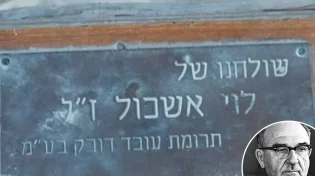 שולחנו של
לוי אשכול ז"ל
תרומת עובד דובק בע"מ